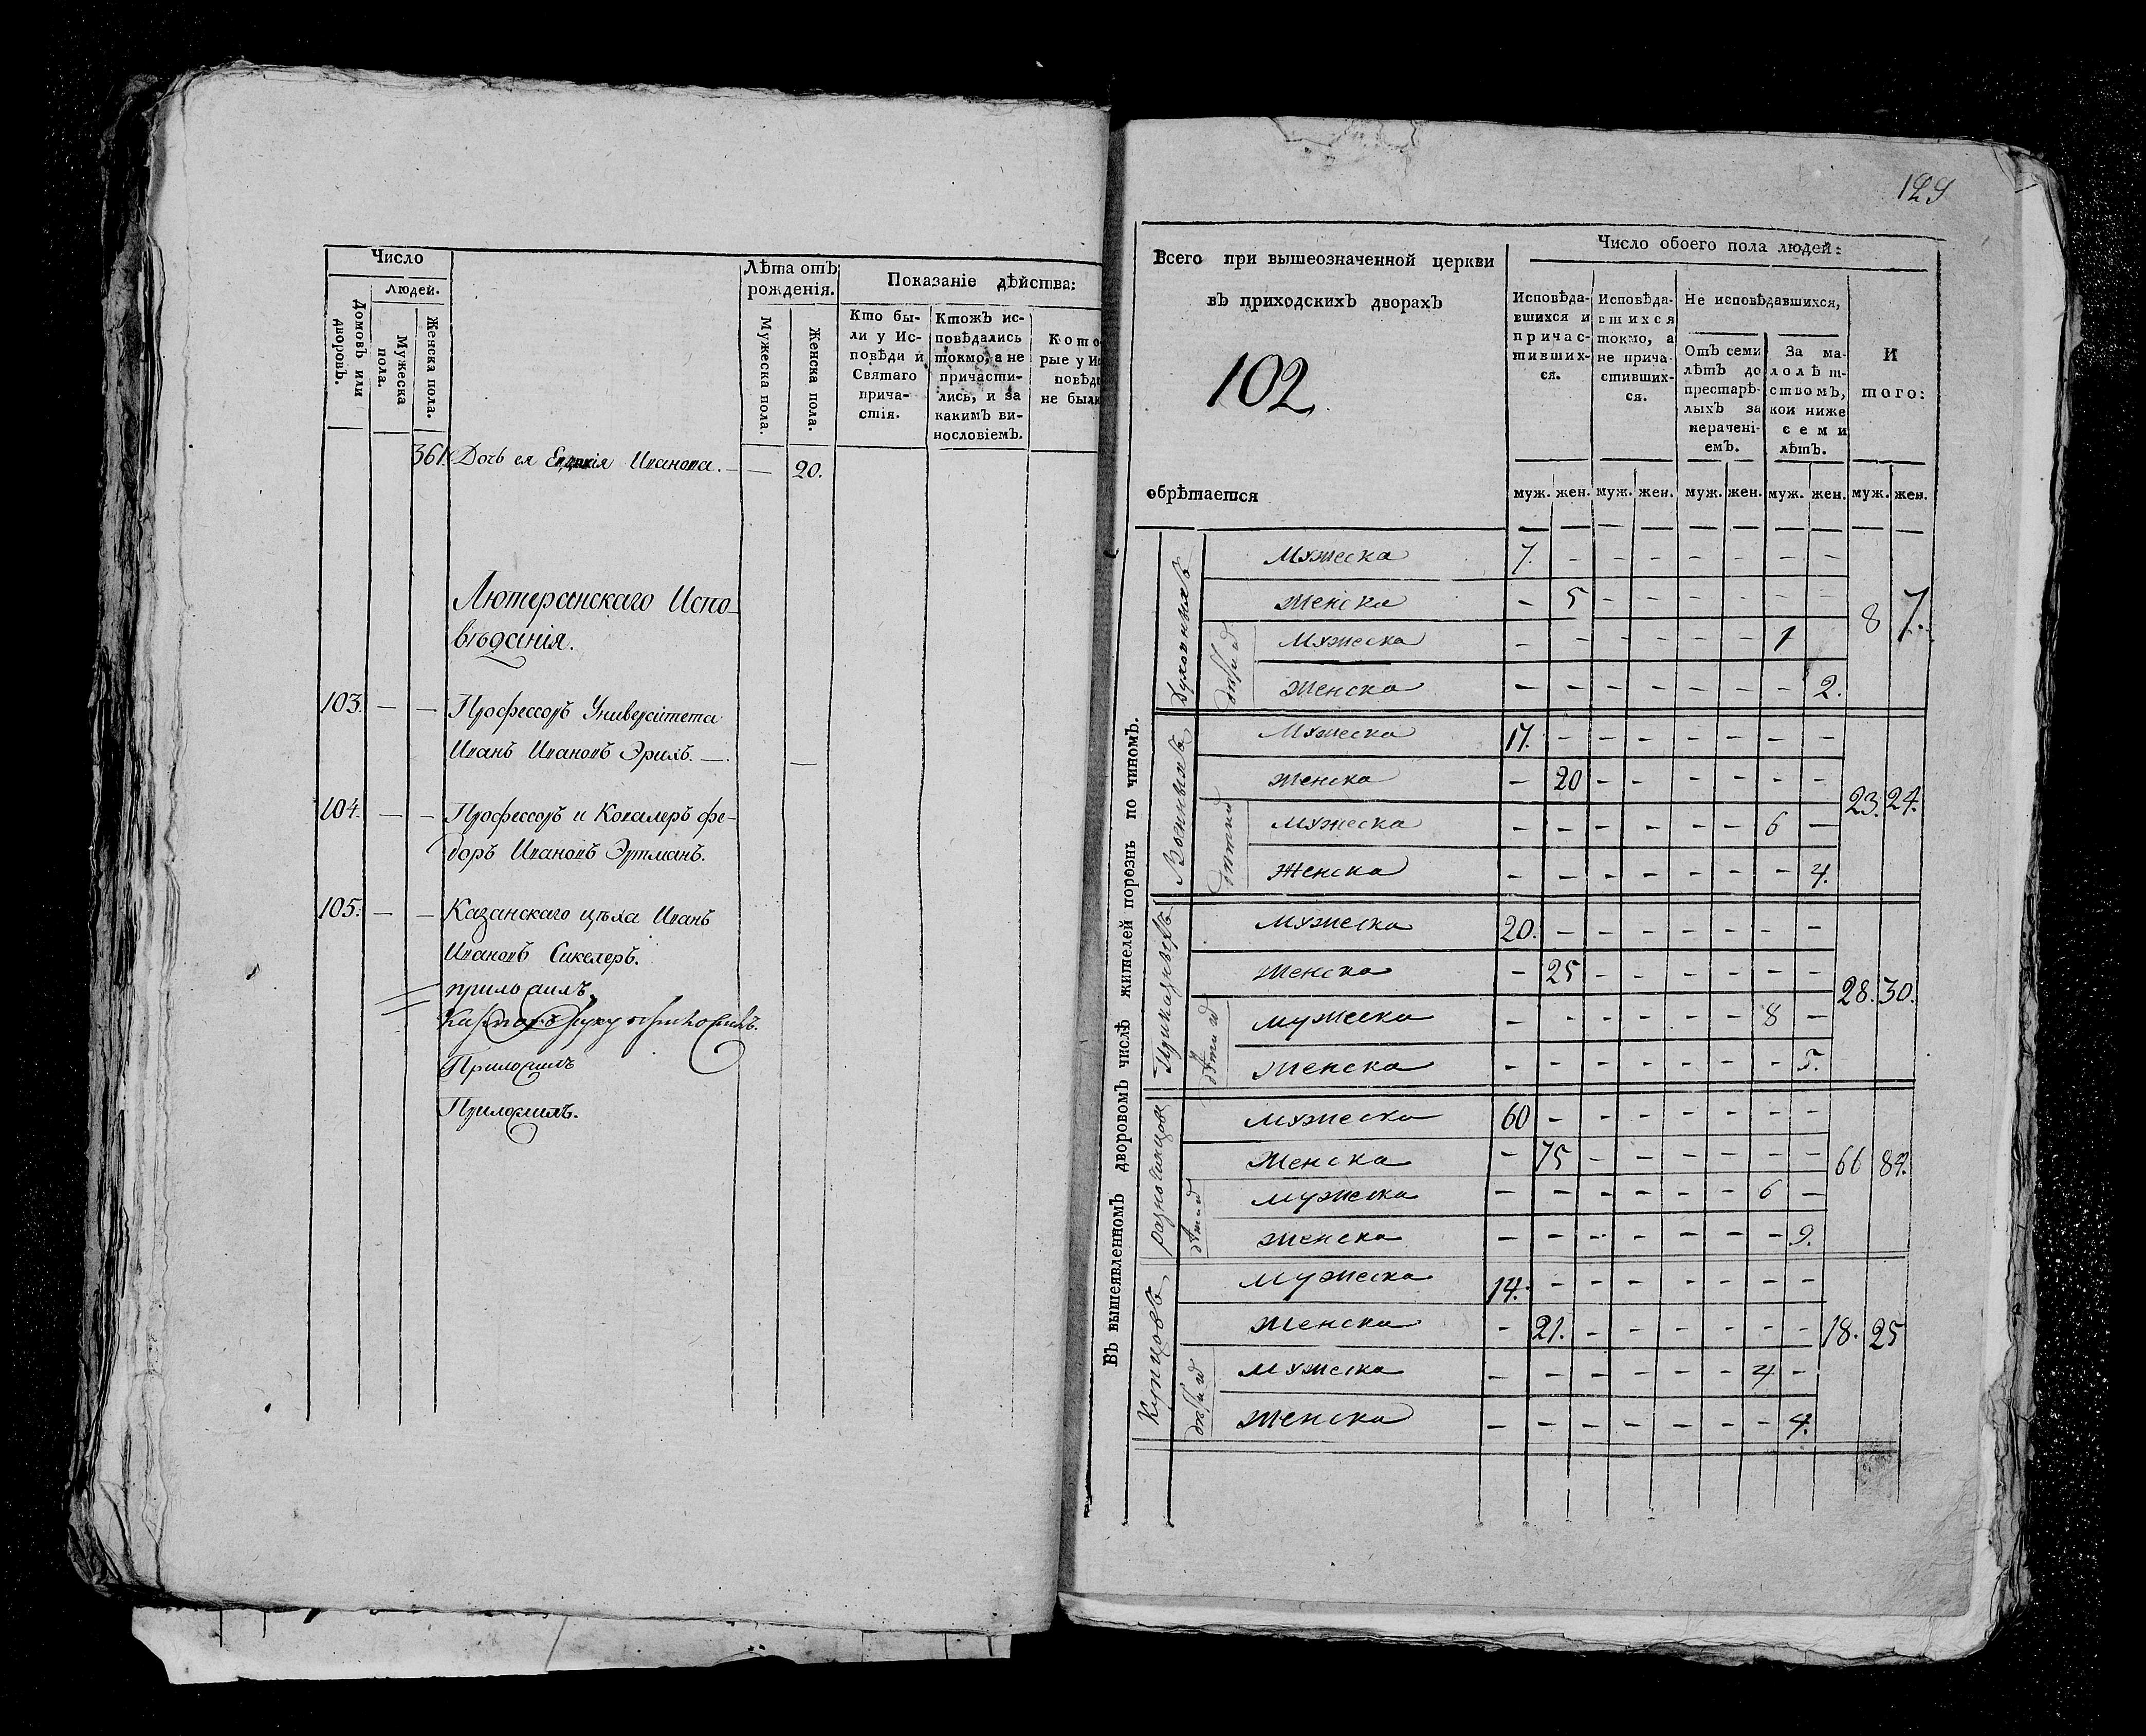 Число
Людей.
Домовъ или дворовъ.
Мужеска пола.
Женска пола.
Лѣта отъ рожденія.
Мужеска пола.
Женска пола.
Показаніе дѣйства:
Кто бы-
ли у Ис-
повѣди и
Святаго
прича-
стія.
Ктожъ ис-
повѣдались
токмо, а не
причасти-
лись, и за
какимъ ви-
нословіемъ.
Кото
рые у Ис
повѣд
не был
361. Дочь ея Иванова. — — 20.
Лютеранскаго Испо-
вѣданія.
103. — — Профессоръ Университета
Иванъ Ивановъ Эрихъ. —. —
104. — — Профессоръ и Кавалеръ Фе-
доръ Ивановъ Эртманъ.
105. — — Казанскаго цѣха Иванъ
Ивановъ Сикелеръ.
Приложилъ.
129
Всего при вышеозначенной церкви
въ приходскихъ дворахъ
102.
обрѣтается
Число обоего пола людей:
Исповѣда-
вшихся и
причас-
тивших-
ся.
Исповѣда-
вшихся
токмо, а
не прича-
стивших-
ся.
Не исповѣдавшихся,
Отъ семи
лѣтъ до
престарѣ-
лыхъ за
нерачені-
емъ.
За ма-
лолѣт-
ствомъ,
кои ниже
семи
лѣтъ.
И
того:
муж. жен. муж. жен. муж. жен. муж. жен. муж. жен.
Въ вышеявленномъ дворовомъ числѣ жителей порознь по чиномъ.
Духовныхъ
Мужеска 7. — — — — — — —
Женска — 5 — — — — — —
дѣтей
Мужеска — — — — — — 1
Женска — — — — — — — 2.
8 7.
Военныхъ
Мужеска 17. — — — — — — —
Женска — 20 — — — — — —
дѣтей
Мужеска — — — — — — 6 —
Женска — — — — — — — 4.
23. 24.
Приказныхъ
Мужеска 20. — — — — — — —
Женска — 25 — — — — — —
дѣтей
Мужеска — — — — — — 8 —
Женска — — — — — — — 5.
28. 30.
разночинцов
Мужеска 60 — — — — — — —
Женска — 75 — — — — — —
дѣтей
Мужеска — — — — — — 6 —
Женска — — — — — — — 9.
66 84.
Купцовъ
Мужеска 14. — — — — — — —
Женска — 21. — — — — — —
дѣтей
Мужеска — — — — — — 4 —
Женска — — — — — — — 4.
18. 25